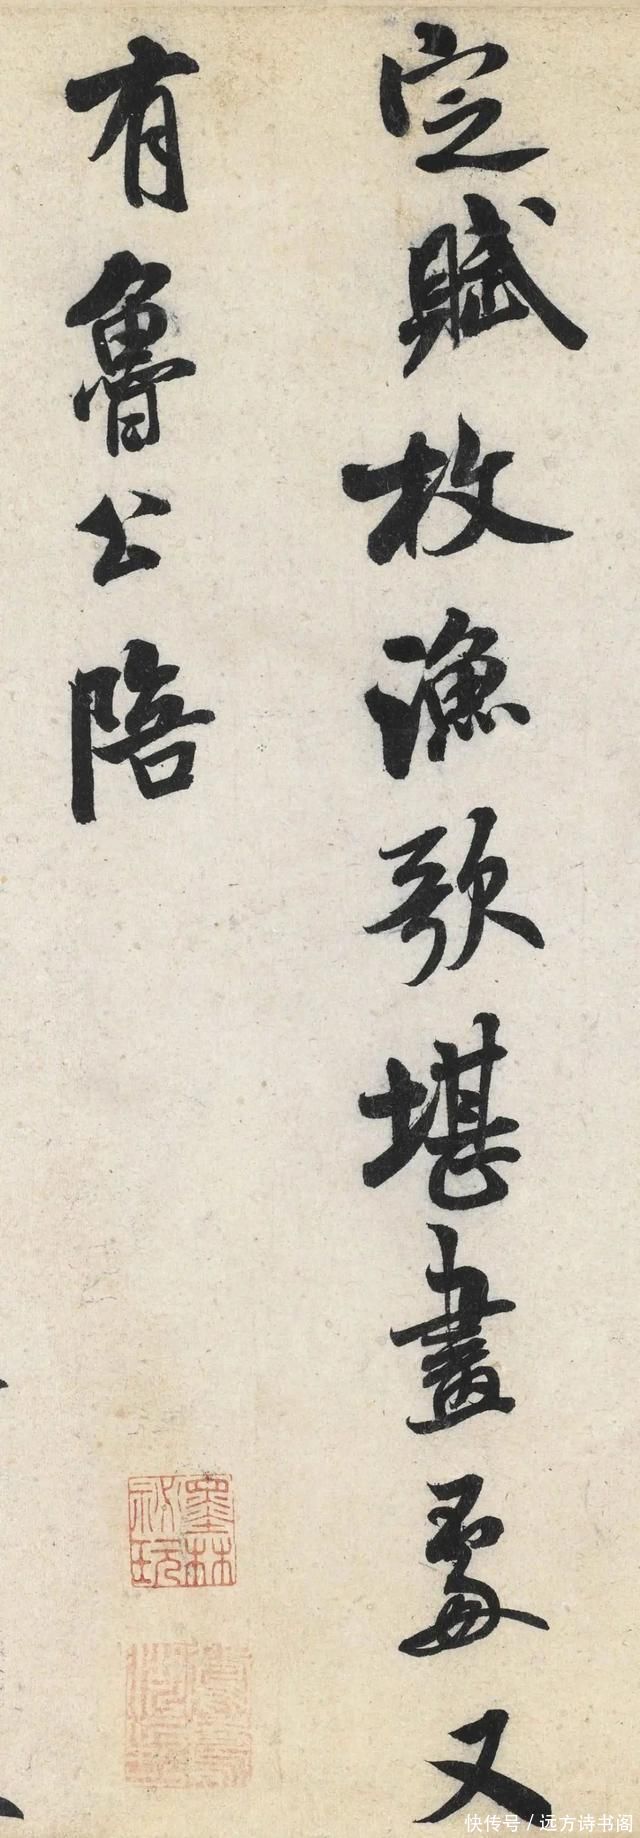 定賦枚漁歌堪畫處又
有魯公陪
墨林祕玩
快传号 / 远方诗书阁